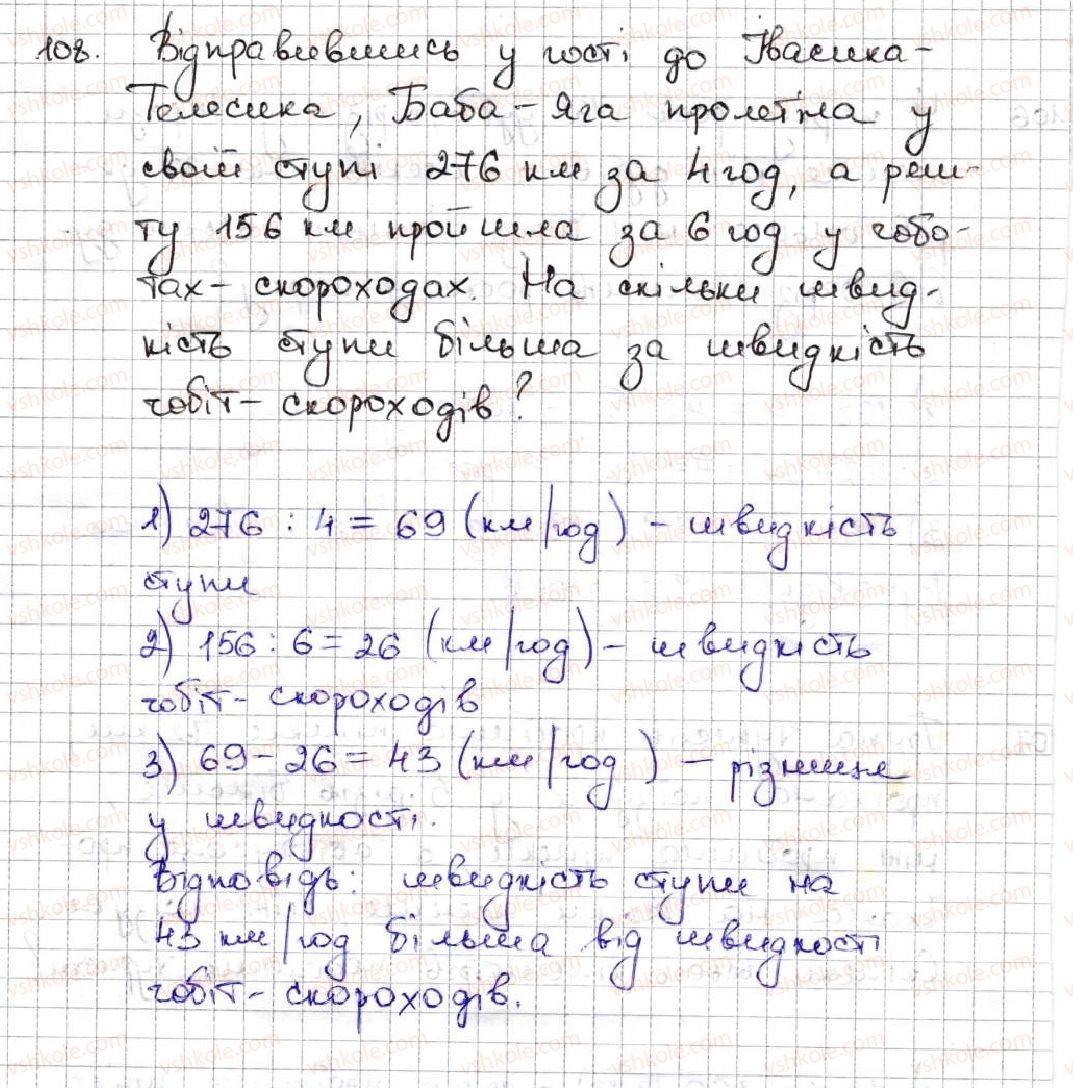 108. Відправившись у гості до Івасика-
Телесика, Баба-Яга пролетіла у
своїй ступі 276 км за 4 год, а реш-
ту 156 км пройшла за 6 год у чобо-
тах-скороходах. На скільки швид-
кість ступи більша за швидкість
чобіт-скороходів?
1) 276 : 4 = 69 (км/год) - швидкість
ступи
2) 156 : 6 = 26 (км/год) - швидкість
чобіт-скороходів
3) 69 - 26 = 43 (км/год) - різниця
у швидкості.
Відповідь: швидкість ступи на
43 км/год більша від швидкості
чобіт-скороходів.
vshkole.com